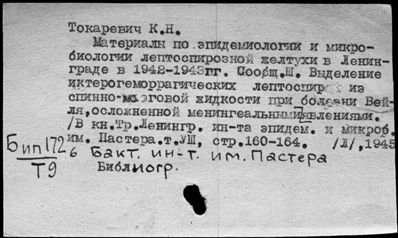 Токаревич К.Н.
Материалы по эпидемиологии и микро-
биологии лептоспирозной желтухи в Ленин-
граде в 1942-1943гг. Сообщ.Ш. Выделение
иктерогеморрагических лептоспир из
спинно-мозговой жидкости при болезни Вей-
ля, осложненной менингеальными явлениями.
/В кн.Тр.Ленингр. ин-та эпидем. и микроб.
им. Пастера.т.УШ, стр.160-164. /Л/,1945
Бип172 б Бакт. ин-т. им. Пастера
Т9 Библиогр.